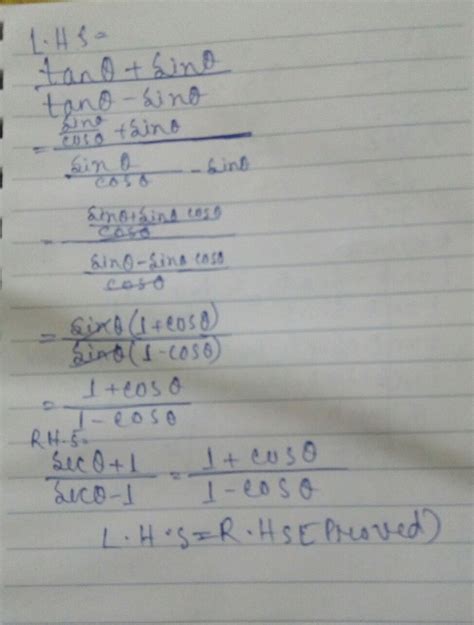 L.H S=
tanθ + sinθ
tanθ - sinθ
= sinθ/cosθ + sinθ
sinθ/cosθ - sinθ
= sinθ+sinθ cosθ
cosθ
sinθ-sinθ cosθ
cosθ
= sinθ(1+cosθ)
sinθ(1-cosθ)
= 1+cosθ
1-cosθ
R.H.S=
secθ+1 = 1+cosθ
secθ-1 1-cosθ
L.H.S=R.HS(Proved)